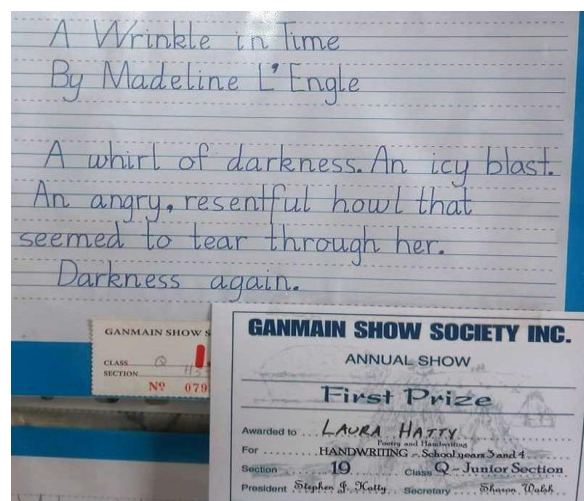 A Wrinkle in Time
By Madeline L'Engle
A whirl of darkness. An icy blast.
An angry, resentful howl that
seemed to tear through her.
Darkness again.
GANMAIN SHOW S
CLASS Q
SECTION
Nº 079
GANMAIN SHOW SOCIETY INC.
ANNUAL SHOW
First Prize
Awarded to LAURA HATTY
Poetry and Handwriting
For HANDWRITING - School years 3 and 4
Section 19 Class Q - Junior Section
President Stephen J. Hatty Secretary Sharon Walsh